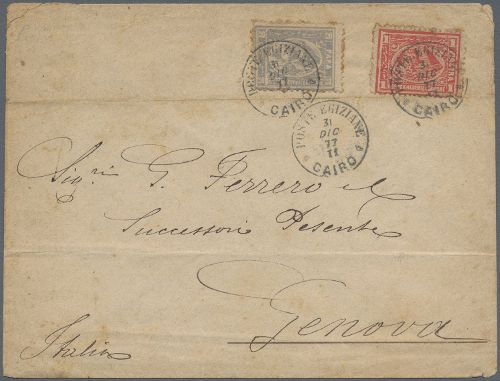 POSTE EGIZIANE
31
DIC
77
CAIRO
POSTE EGIZIANE
31
DIC
77
CAIRO
POSTE EGIZIANE
31
DIC
77
CAIRO
Sig.ri G. Ferrero &
Successori
Genova
Italia